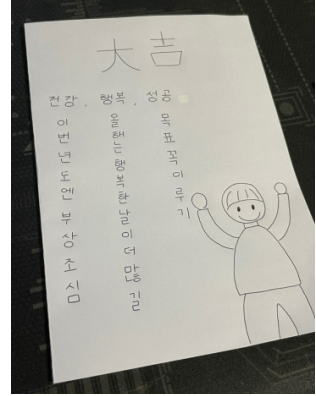 大吉
건강, 행복, 성공
이번년도엔 부상조심
올핸 행복한 날이 더 많길
목표 꼭 이루기